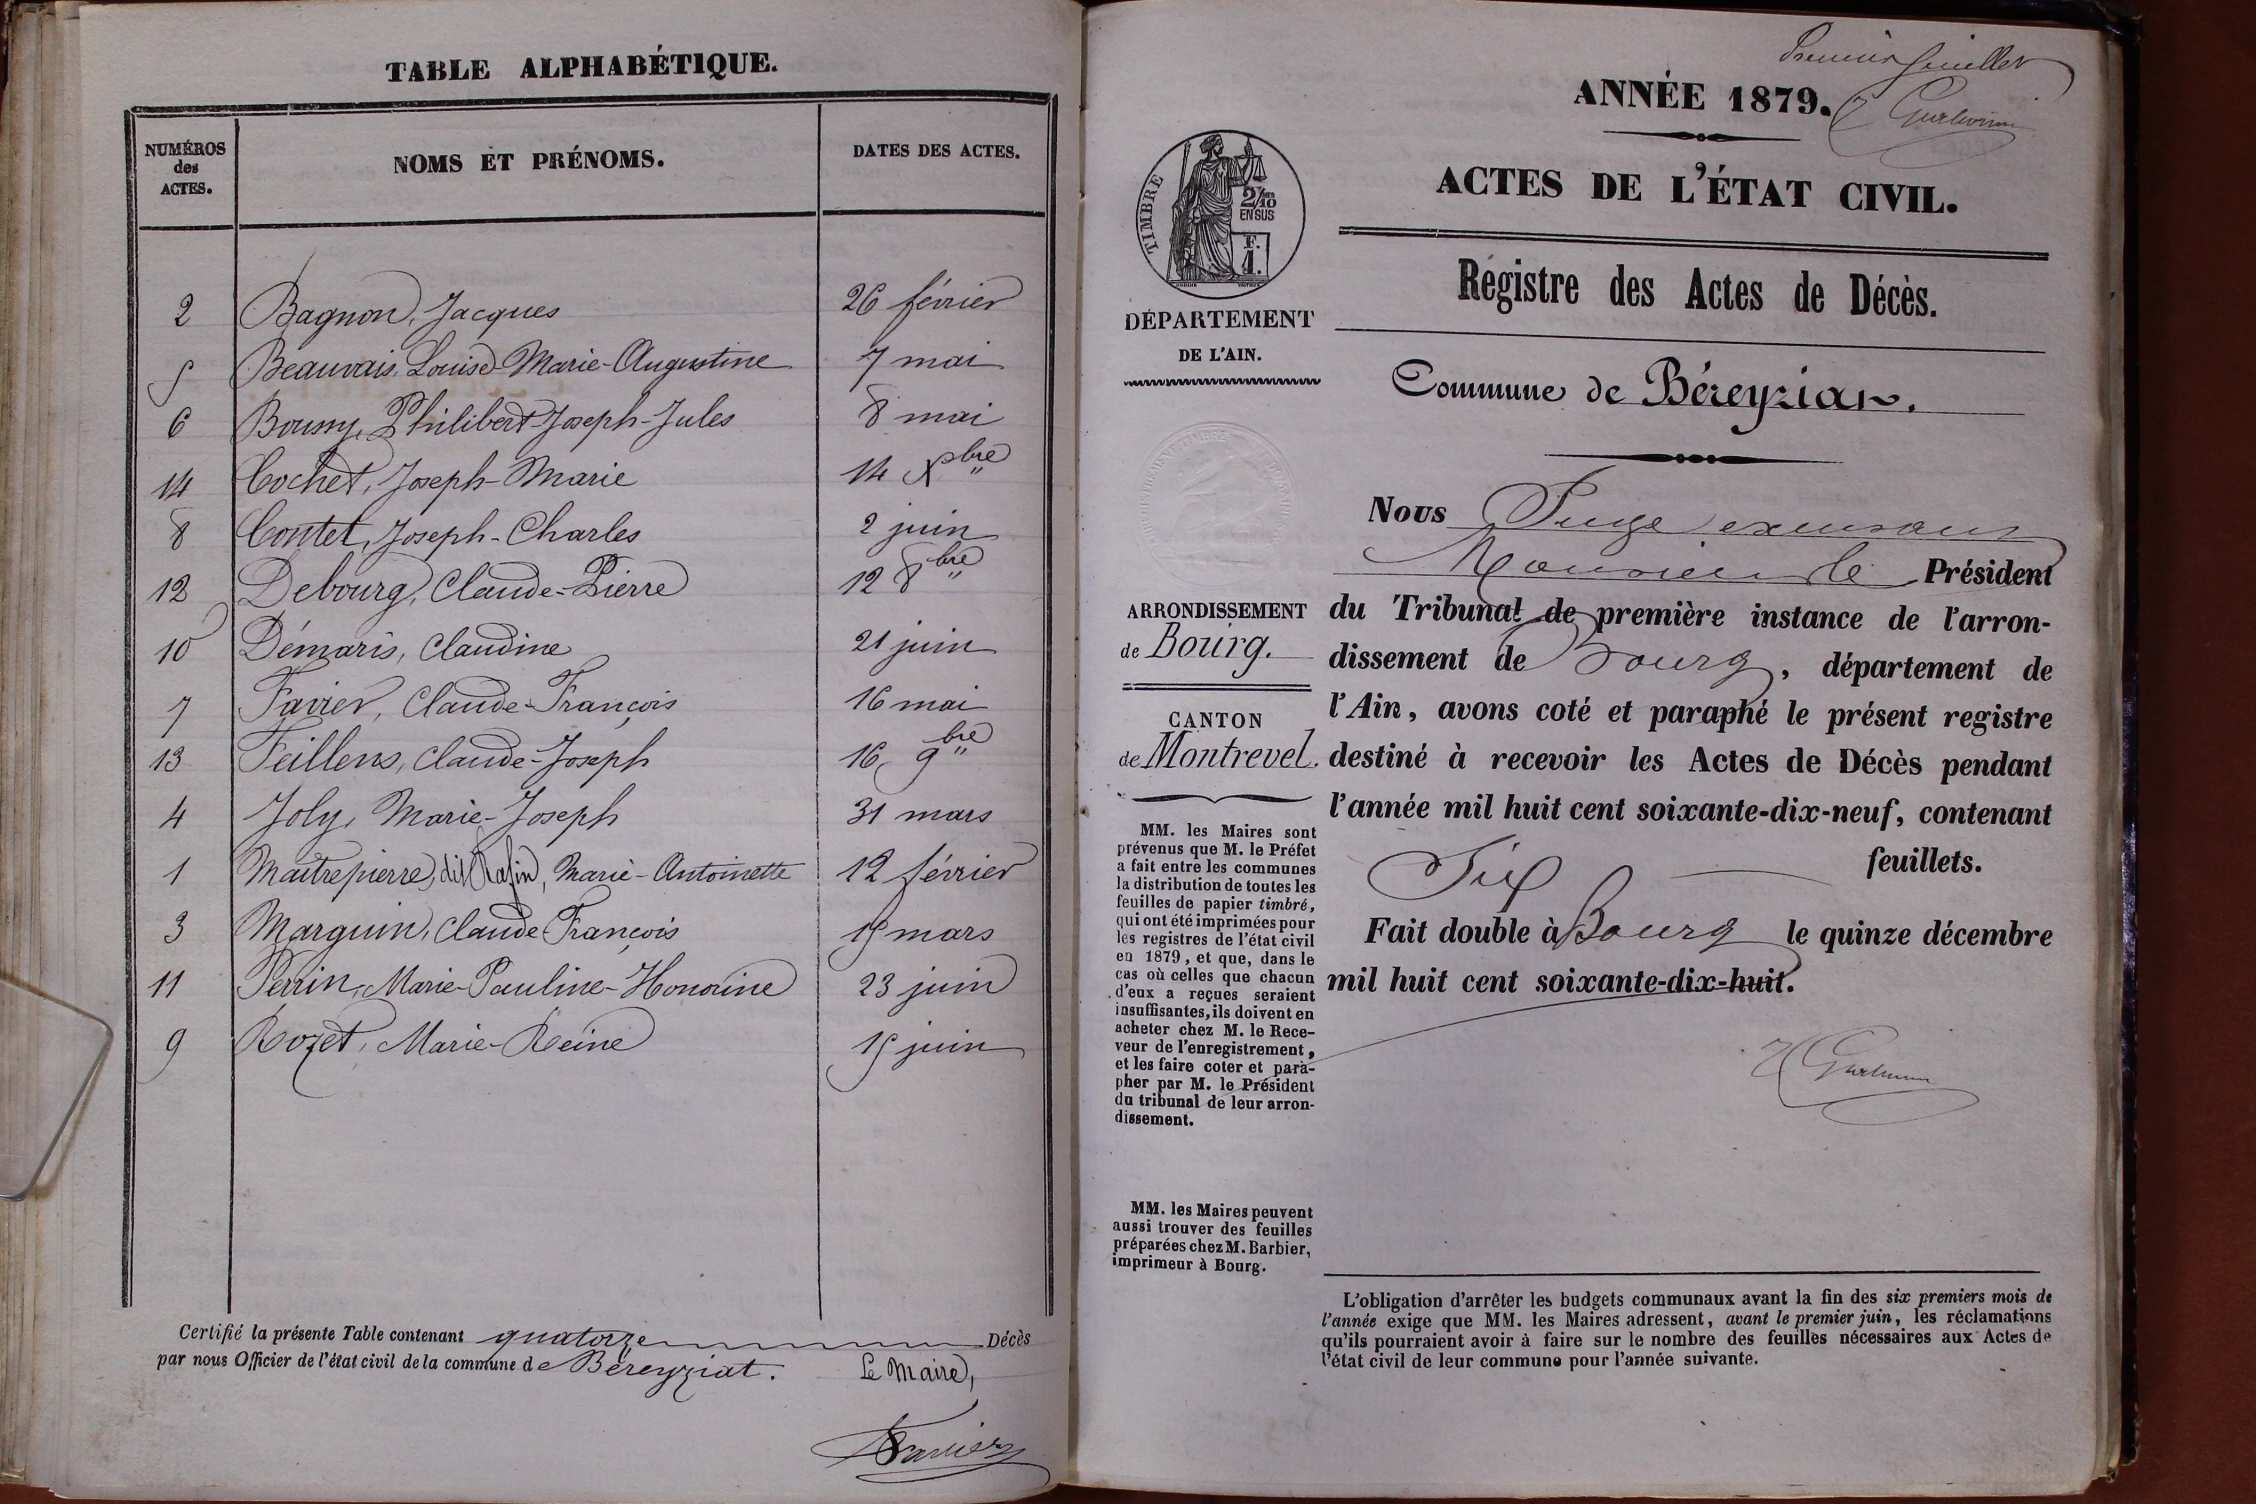 TABLE ALPHABÉTIQUE.
NUMÉROS
des
ACTES.
NOMS ET PRÉNOMS.
DATES DES ACTES.
2 Bagnon, Jacques 26 février
5 Beauvais, Louise-Marie-Augustine 7 mai
6 Boussy, Philibert-Joseph-Jules 8 mai
14 Cochet, Joseph-Marie 14 Xbre
8 Contet, Joseph-Charles 2 juin
12 Debourg, Claude-Pierre 12 8bre
10 Démaris, Claudine 21 juin
7 Favier, Claude-François 16 mai
13 Feillens, Claude-Joseph 16 9bre
4 Joly, Marie-Joseph 31 mars
1 Maitrepierre, dit Rafin, Marie-Antoinette 12 février
3 Marguin, Claude François 15 mars
11 Perrin, Marie-Pauline-Honorine 23 juin
9 Rozet, Marie-Reine 15 juin
Certifié la présente Table contenant quatorze Décès
par nous Officier de l'état civil de la commune de Béreyziat.
Le Maire,
Favier
Premier feuillet
ANNÉE 1879.
ACTES DE L'ÉTAT CIVIL.
Régistre des Actes de Décès.
Commune de Béreyziat.
TIMBRE
2/10
EN SUS
F.
1.
DÉPARTEMENT
DE L'AIN.
ARRONDISSEMENT
de Bourg.
CANTON
de Montrevel.
MM. les Maires sont
prévenus que M. le Préfet
a fait entre les communes
la distribution de toutes les
feuilles de papier timbré,
qui ont été imprimées pour
les registres de l'état civil
en 1879, et que, dans le
cas où celles que chacun
d'eux a reçues seraient
insuffisantes, ils doivent en
acheter chez M. le Rece-
veur de l'enregistrement,
et les faire coter et para-
pher par M. le Président
du tribunal de leur arron-
dissement.
MM. les Maires peuvent
aussi trouver des feuilles
préparées chez M. Barbier,
imprimeur à Bourg.
Nous Juge
Monsieur le Président
du Tribunal de première instance de l'arron-
dissement de Bourg, département de
l'Ain, avons coté et paraphé le présent registre
destiné à recevoir les Actes de Décès pendant
l'année mil huit cent soixante-dix-neuf, contenant
Six feuillets.
Fait double à Bourg le quinze décembre
mil huit cent soixante-dix-huit.
L'obligation d'arrêter les budgets communaux avant la fin des six premiers mois de
l'année exige que MM. les Maires adressent, avant le premier juin, les réclamations
qu'ils pourraient avoir à faire sur le nombre des feuilles nécessaires aux Actes de
l'état civil de leur commune pour l'année suivante.